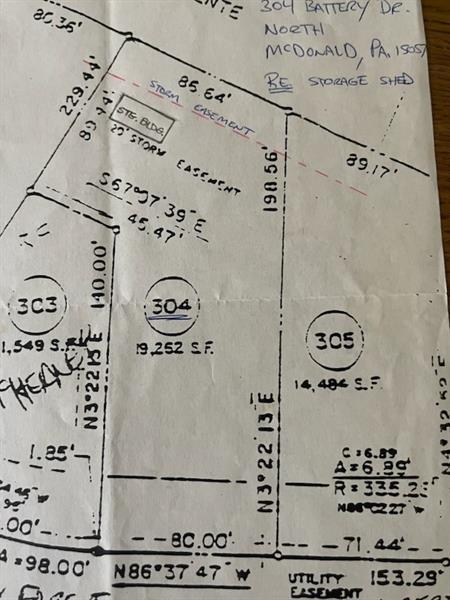 ENTE
304 BATTERY DR.
NORTH
McDONALD, PA. 15057
RE STORAGE SHED
80.36'
229.44'
89.74'
85.64'
STORM EASEMENT
STG. BLDG.
20' STORM EASEMENT
198.56
89.17'
S67°07'39"E
45.47'
140.00'
303
304
305
1,549 S.F.
19,252 S.F.
14,484 S.F.
N3°22'13"E
N3°22'13"E
1.85'
C = 6.89
A = 6.89'
R = 335.25
.00'
80.00'
71.44'
A = 98.00'
N86°37'47"W
UTILITY
EASEMENT
153.29'